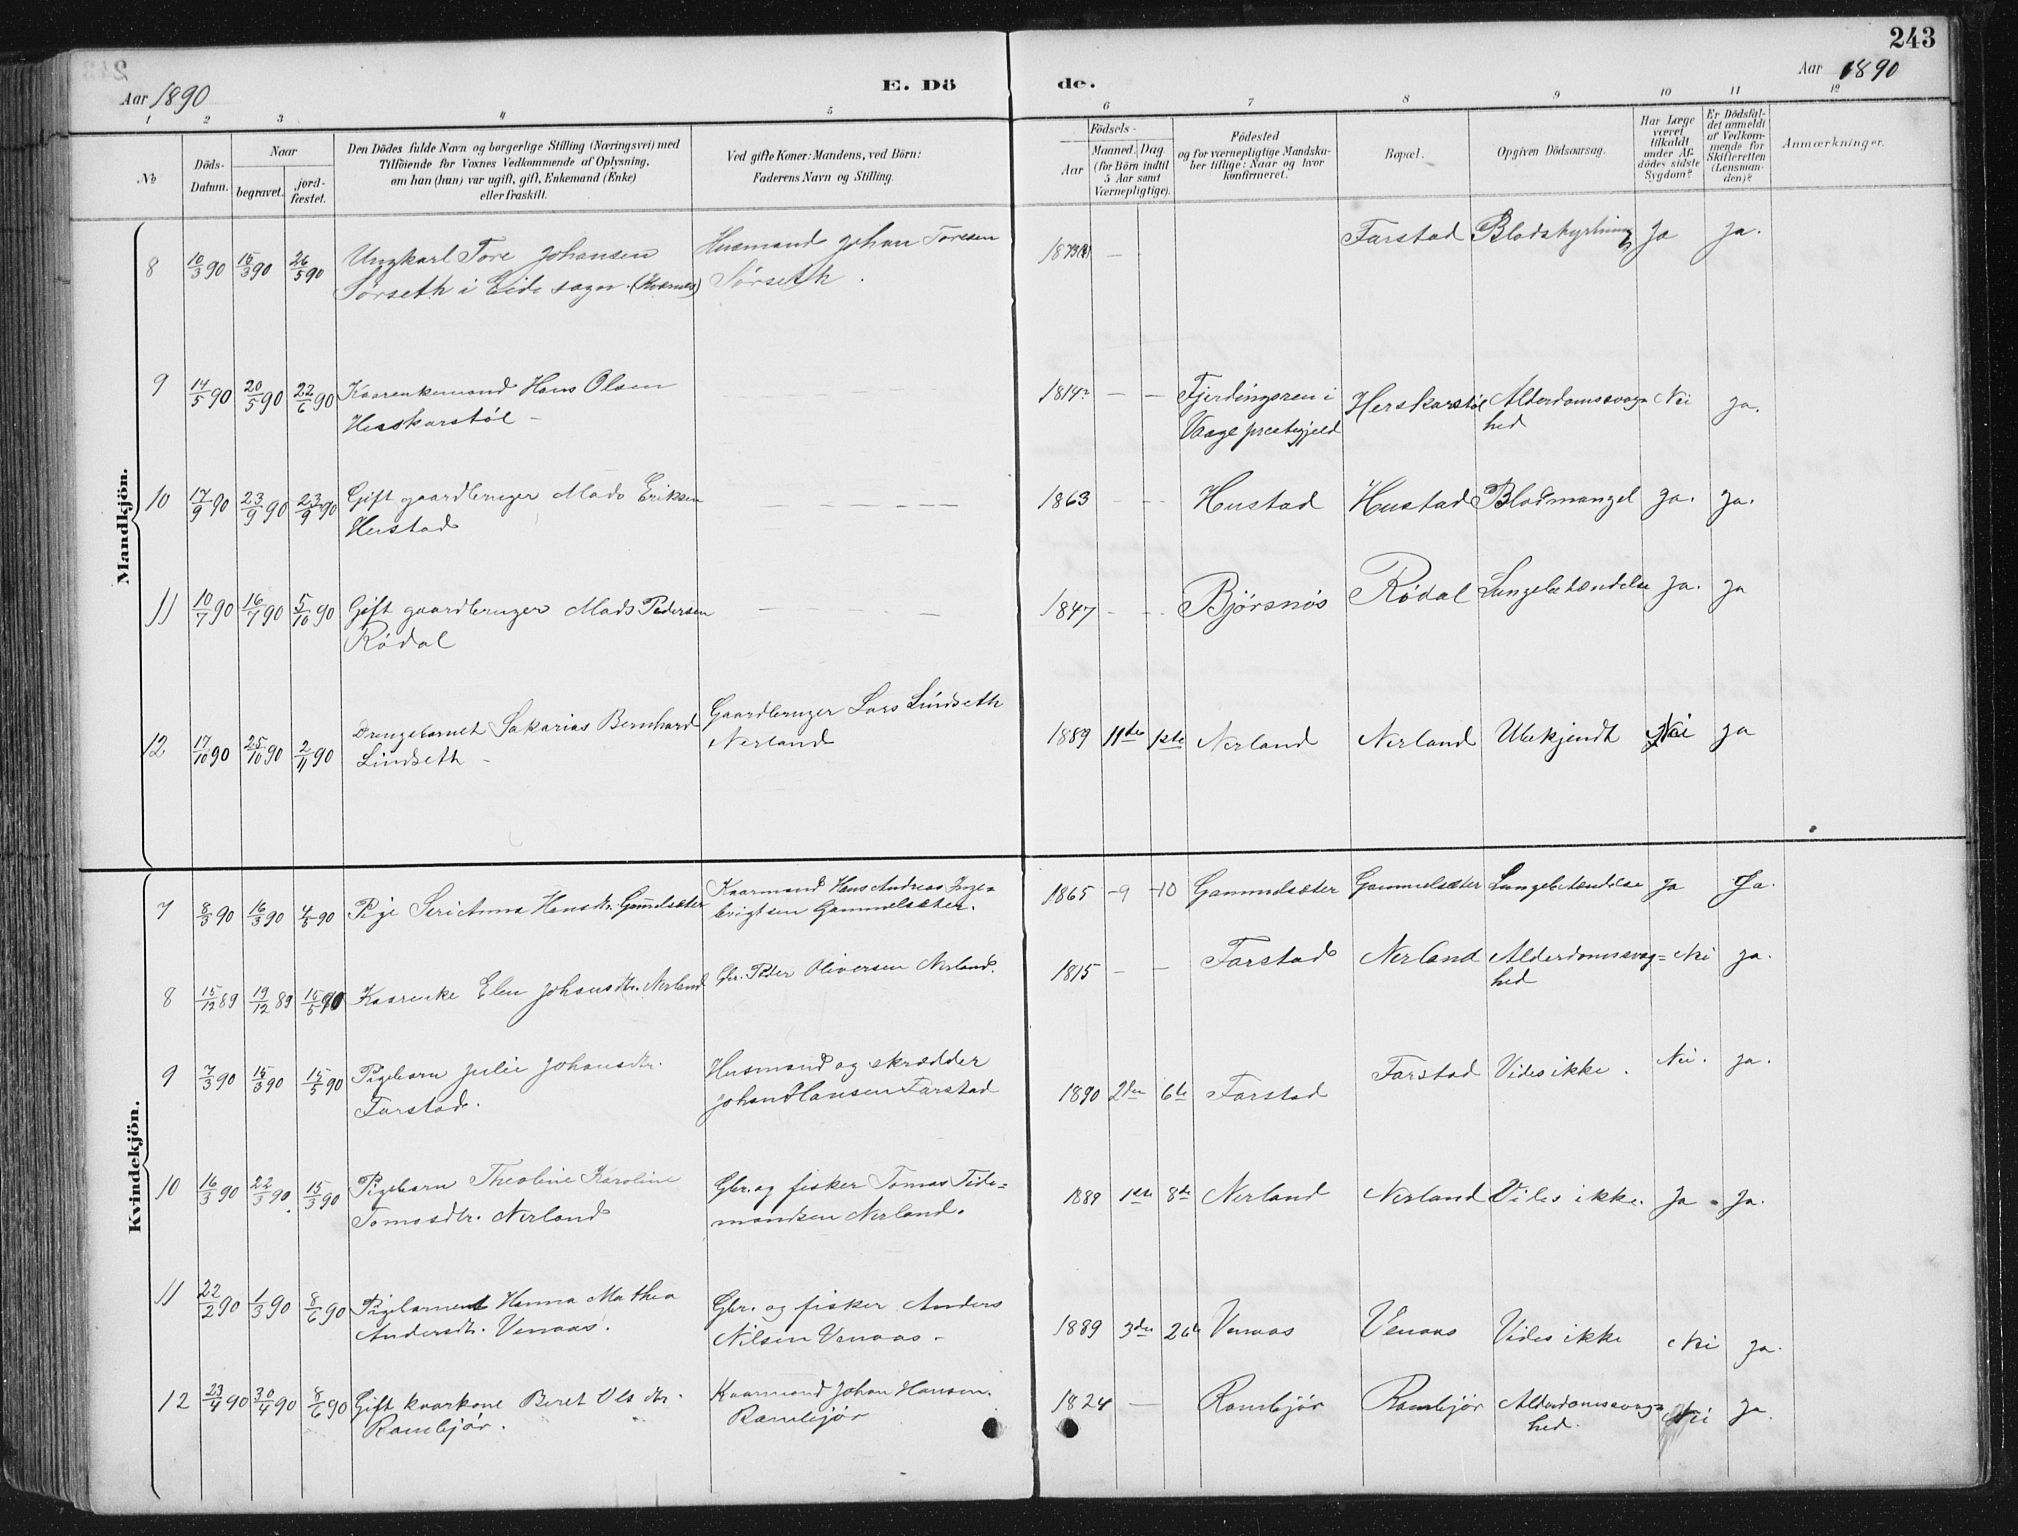 243
Aar 1890
E. Dö
de.
Aar 1890
1 2 3 4 5 6 7 8 9 10 11 12
№
Döds-
Datum.
Naar
begravet.
jord-
fæstet.
Den Dödes fulde Navn og borgerlige Stilling (Næringsvei) med
Tilföiende for Voxnes Vedkommende af Oplysning,
om han (hun) var ugift, gift, Enkemand (Enke)
eller fraskilt.
Ved gifte Koner: Mandens, ved Börn:
Faderens Navn og Stilling.
Födsels-
Aar
Maaned. Dag
(for Börn indtil
5 Aar samt
Værnepligtige).
Födested
og for værnepligtige Mandska-
ber tillige: Naar og hvor
konfirmeret.
Bopæl.
Opgiven Dödsaarsag.
Har Læge
været
tilkaldt
under Af-
dödes sidste
Sygdom?
Er Dödsfal-
det anmeldt
af Vedkom-
mende for
Skifteretten
(Lensman-
den)?
Anmærkninger.
Mandkjön.
8 10/3 90 15/3 90 26/5 90 Ungkarl Tore Johansen Husmand Johan Toresen 1873 — Farstad Blodstyrtning Ja Ja.
Sørseth i Eide sogn. (Kvernes) Sørseth.
9 14/5 90 20/5 90 22/6 90 Kaarenkemand Hans Olsen 1814 — — Fjerdingsren i Herskarstøl Alderdomssvag= Nei ja.
Herskarstøl — Vaage præstegjeld hed
10 17/9 90 23/9 90 23/9 90 Gift gaardbruger Mads Eriksen — — — — — 1863 -- Hustad Hustad Blodmangel ja. ja.
Hustad
11 10/7 90 16/7 90 5/10 90 Gift gaardbruger Mads Pedersen — — — 1847 — -- Bjørsnøs Rødal Lungebetændelse ja. ja
Rødal
12 17/10 90 25/10 90 2/11 90 Drengebarnet Sakarias Bernhard Gaardbruger Lars Lindseth 1889 11te 1ste Nerland Nerland Ubekjendt Nei ja
Lindseth — Nerland
Kvindekjön.
7 8/3 90 16/3 90 4/5 90 Pige Seri Anna Hansdtr. Gammelsæter Kaarmand Hans Andreas Inge= 1865 -9 -10 Gammelsæter Gammelsæter Lungebetændelse ja Ja.
brigtsen Gammelsæter.
8 15/12 89 19/12 89 15/5 90 Kaarenke Elen Johansdtr. Nerland Gbr. Peder Oliversen Nerland. 1815 — — Farstad Nerland Alderdomssvag= Nei ja.
hed
9 7/3 90 15/3 90 15/5 90 Pigebarn Julie Johansdtr. Husmand og skrædder 1890 2den 6te Farstad Farstad Vides ikke. Nei. ja.
Farstad. Johan Hansen Farstad
10 16/3 90 22/3 90. 15/3 90 Pigebarn Theoline Karoline Gbr. og fisker Tomas Tide= 1889 1ste 8de Nerland Nerland Vides ikke. Ja. Ja.
Tomasdtr. Nerland mandsen Nerland.
11 22/2 90 1/3 90 8/6 90 Pigebarnet Hanna Mathea Gbr. og fisker Anders 1889 3die 26te Venaas Venaas Vides ikke Nei ja.
Andersdtr. Venaas. Nilsen Venaas —
12 23/4 90 30/4 90 8/6 90 Gift kaarkone Beret Olsdtr. Kaarmand Johan Hansen. 1824 — Rambjør Rambjør Alderdomssvag= Nei ja.
Rambjør. Rambjør hed.